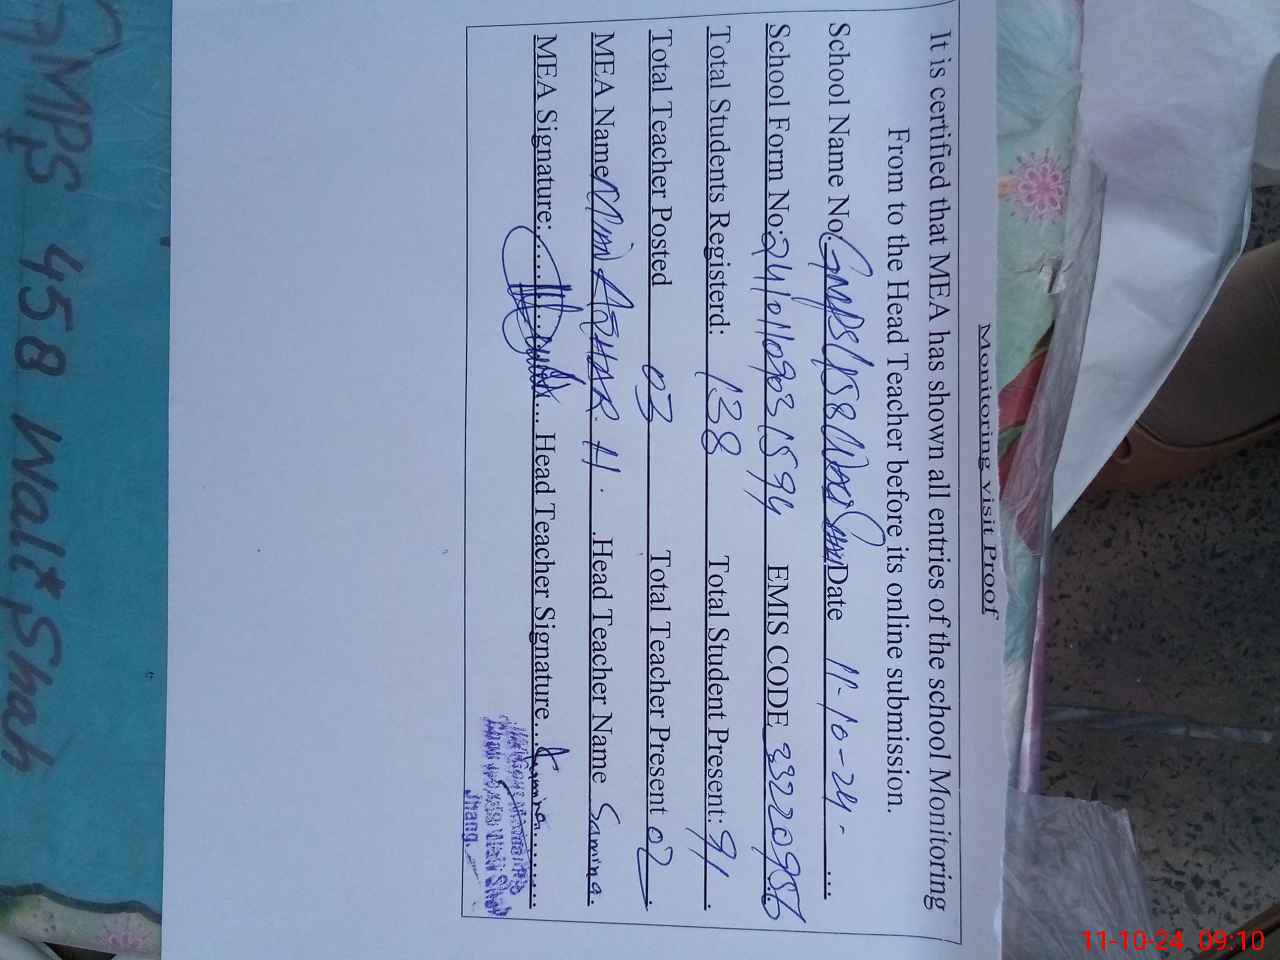 Monitoring visit Proof
It is certified that MEA has shown all entries of the school Monitoring
From to the Head Teacher before its online submission.
School Name No. GMPS 458 Wali Date 11-10-24- ....
School Form No: EMIS CODE 33220956
Total Students Registerd: 138 Total Student Present: 91
Total Teacher Posted 03 Total Teacher Present 02
MEA Name AZHAR H. .Head Teacher Name Samina.
MEA Signature: Head Teacher Signature... Samina.
Jhang.
GMPS 458 Walt Shah
11-10-24 09:10